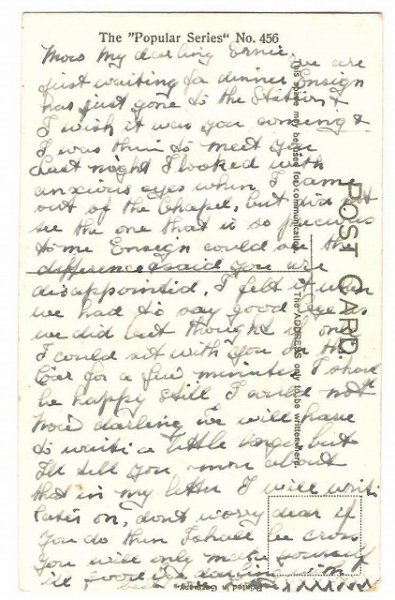 The "Popular Series" No. 456
Now My darling Ernie, we are
just waiting for dinner, Ensign
has just gone to the Station &
I wish it was you coming &
I was thin to meet you
Last night I looked with
anxious eyes when I came
out of the Chapel, but did not
see the one that is so precious
to me Ensign could see the
difference & said you are
disappointed. I felt it when
we had to say good bye as
we did but thought if only
I could sit with you in the
Car for a few minutes I should
be happy still I would not
Now darling we will have
to wait a little longer but
I'll tell you more about
that in my letter I will write
later on, dont worry dear if
you do then I shall be cross
you will only make yourself
ill
with
xxxxxxx
POST CARD.
This space may be used for communication
The ADDRESS only to be written here.
Printed in